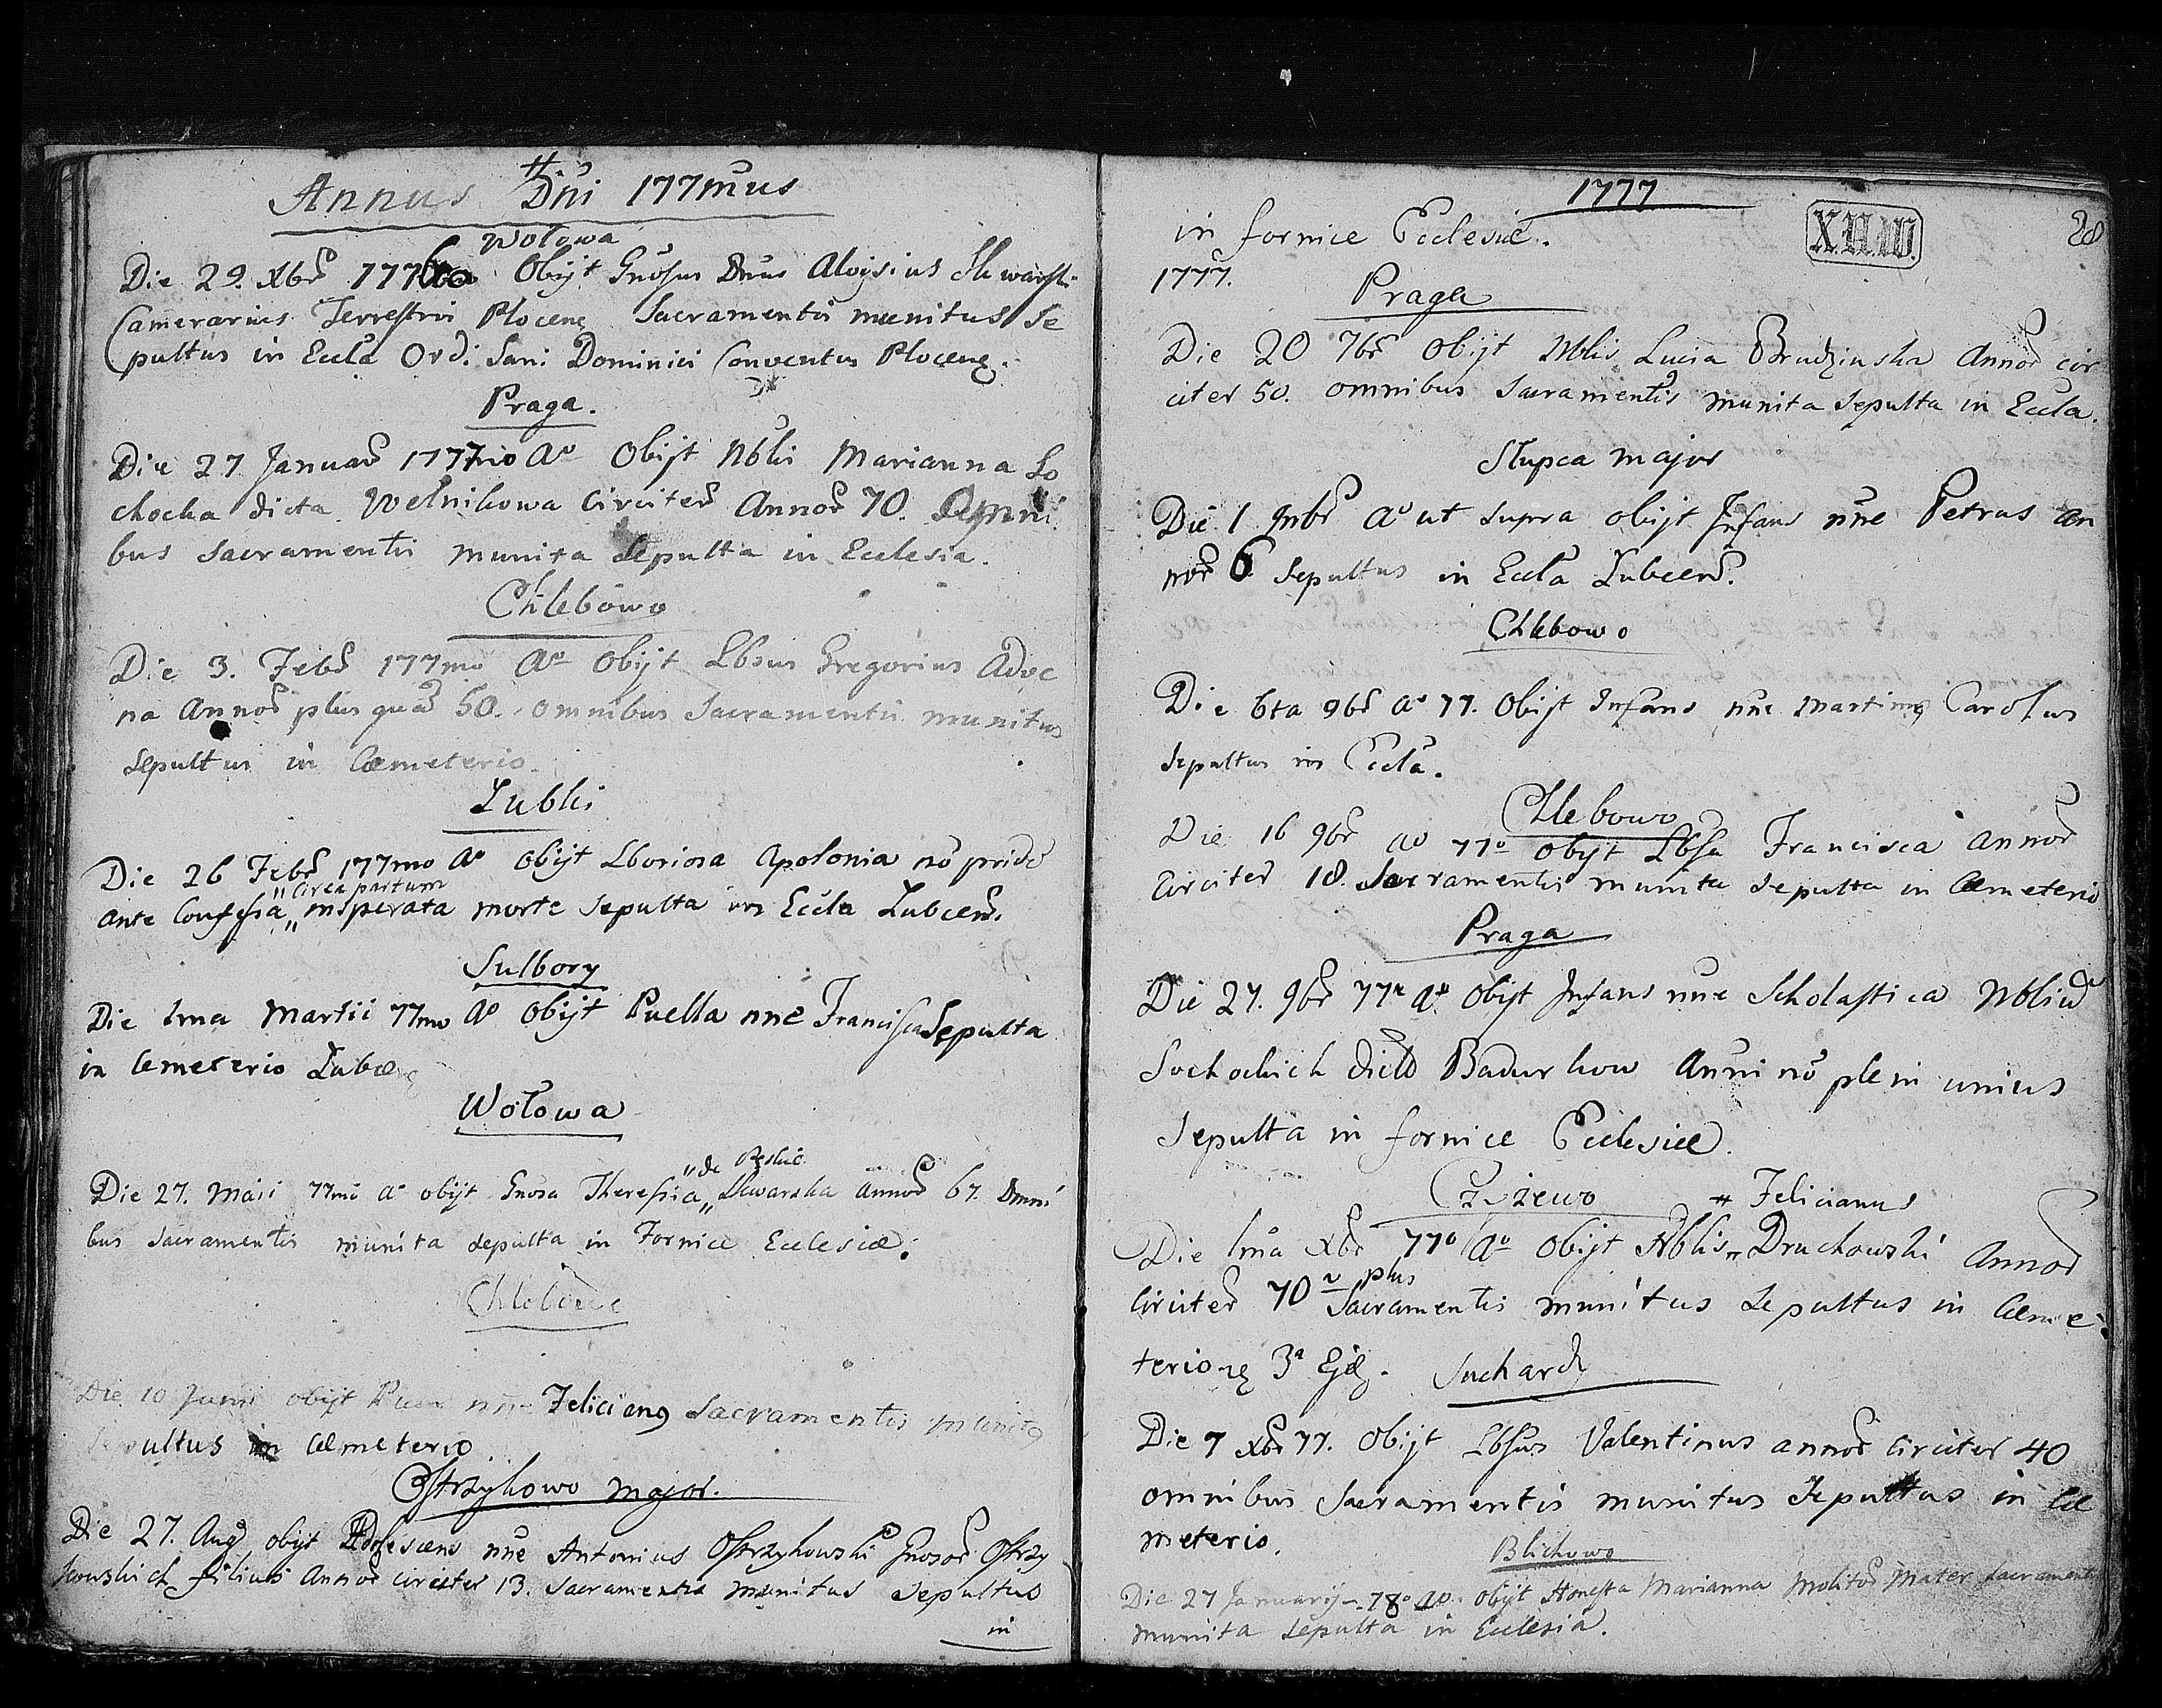 Annus Dñi 1777mus
Wołowa
Die 29. Xbr 1776to Obijt Gnosus Dnus Aloysius Skwarski
Camerarius Terrestris Plocens Sacramentis munitus Se
pultus in Eccla Ordi. Santi Dominici Conventus Plocens.
Praga.
Die 27 Januar 1777mo Ao Obijt Nblis Marianna So
chocka dicta Wełnikowa circiter Annor 70. Omni
bus Sacramentis munita Sepulta in Ecclesia.
Chlebowo
Die 3. Febr 177mo Ao Obijt Lbsus Gregorius Adve
na Annor plus quã 50. omnibus Sacramentis munitus
Sepultus in Cæmeterio.
Łubki
Die 26 Febr 177mo Ao obijt Lboriosa Apolonia nõ pride
"Circa partum
ante Confessa,, insperata morte Sepulta in Eccla Łubcens.
Sulbory
Die 1ma Martii 77mo Ao Obijt Puella nñe Francisca Sepulta
in Cemeterio Łubcens
Wołowa
"de
Die 27. Maii 77mo ao obijt Gnosa Theressia,, Skwarska annor 67. Omni
bus Sacramentis munita sepulta in Fornice Ecclesiæ.
Chlebowo
Die 10 Junii obijt Puer nñe Felicianq Sacramentis munitq
Sepultus in Cæmeterio
Ostrzykowo major.
Die 27. Aug obijt Adolescens nñe Antonius Ostrzykowski Gnosor Ostrzy
kowskich filius Annor circiter 13. Sacramentis munitus Sepultus
in
1777
in fornice Ecclesiæ.
XII.III.
28
1777.
Praga
Die 20 7br Obijt Nblis Lucia Brudzinska Annor cir
citer 50. omnibus Sacramentis munita Sepulta in Eccla.
Słupca major
Die 1 9nbr Ao ut supra obijt Infans nñe Petrus An
nor 6 Sepultus in Eccla Łubcens.
Chlebowo
Die 6ta 9br Ao 77. Obijt Infans nñe Martinq Carolus
Sepultus in Eccla.
Chlebowo
Die 16 9br ao 77o obijt Lbsa Francisca annor
Circiter 18. Sacramentis munita Sepulta in Cæmeterio
Praga
Die 27. 9br 77o Ao Obijt Infans nñe Scholastica Nbliu
Sochockich dicto Badurkow Anni nõ pleni unius
Sepulta in fornice Ecclesiæ.
Czyżewo # Felicianus
Die 1ma Xbr 77o Ao Obijt Nblis,, Druchowski Annor
plus
Circiter 70 Sacramentis munitus Sepultus in Cæme
terio 3a Ejq. Suchardy
Die 7 Xbr 77. Obijt Lbsus Valentinus annor circiter 40
omnibus Sacramentis munitus Sepultus in Cæ
meterio.
Blichowo
Die 27 Januarij 78o Ao. Obijt Honesta Marianna Molitor Mater Sacramentis
munita Sepulta in Ecclesia.